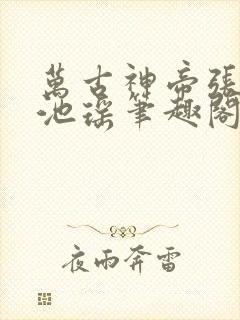 萬古神帝張
池瑤筆趣閣
夜雨奔雷